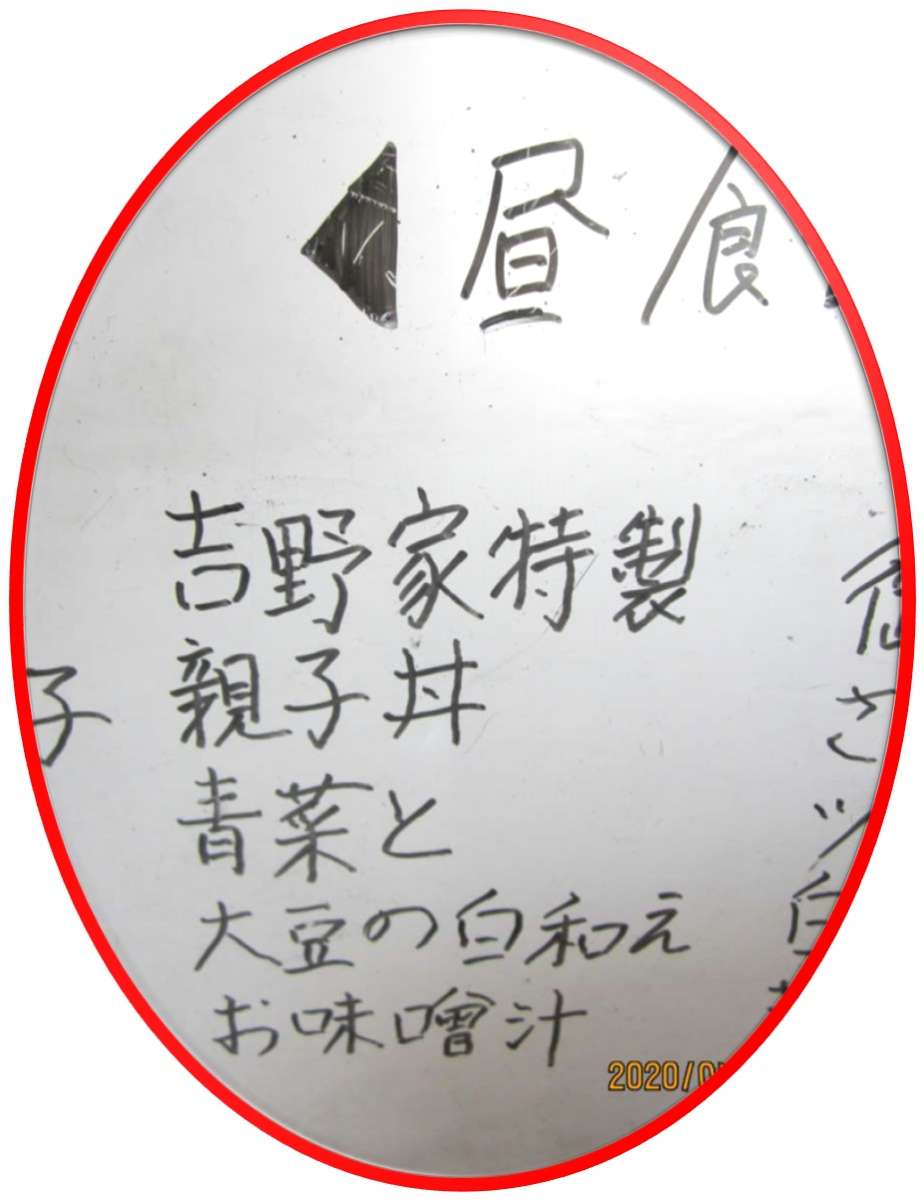 昼食
吉野家特製
親子丼
青菜と
大豆の白和え
お味噌汁
子
2020/0